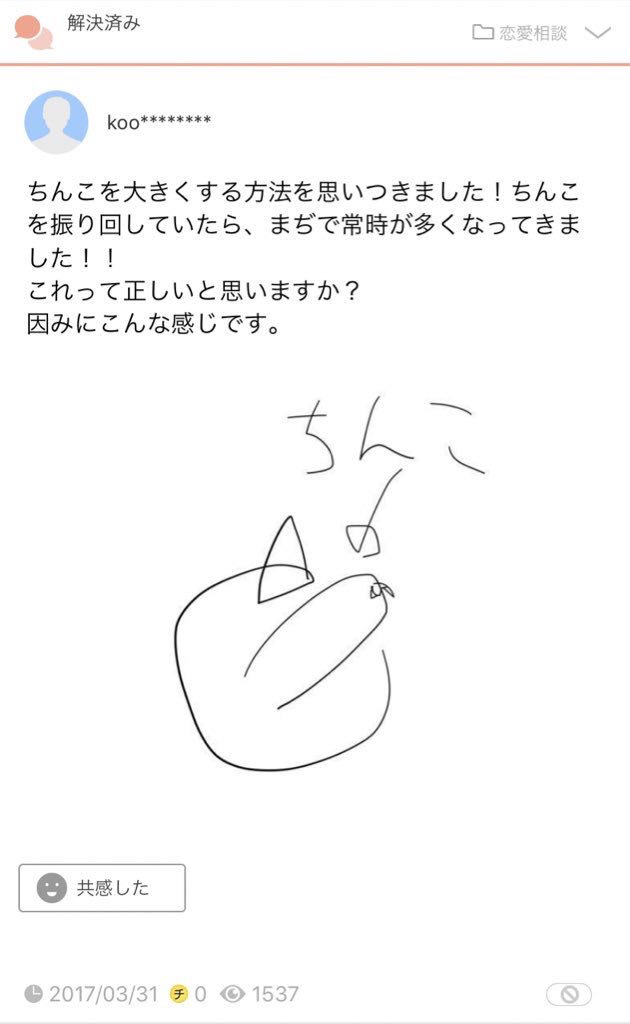 解決済み
恋愛相談
koo********
ちんこを大きくする方法を思いつきました！ちんこ
を振り回していたら、まぢで常時が多くなってきま
した！！
これって正しいと思いますか？
因みにこんな感じです。
ちんこ
共感した
2017/03/31 チ 0 1537